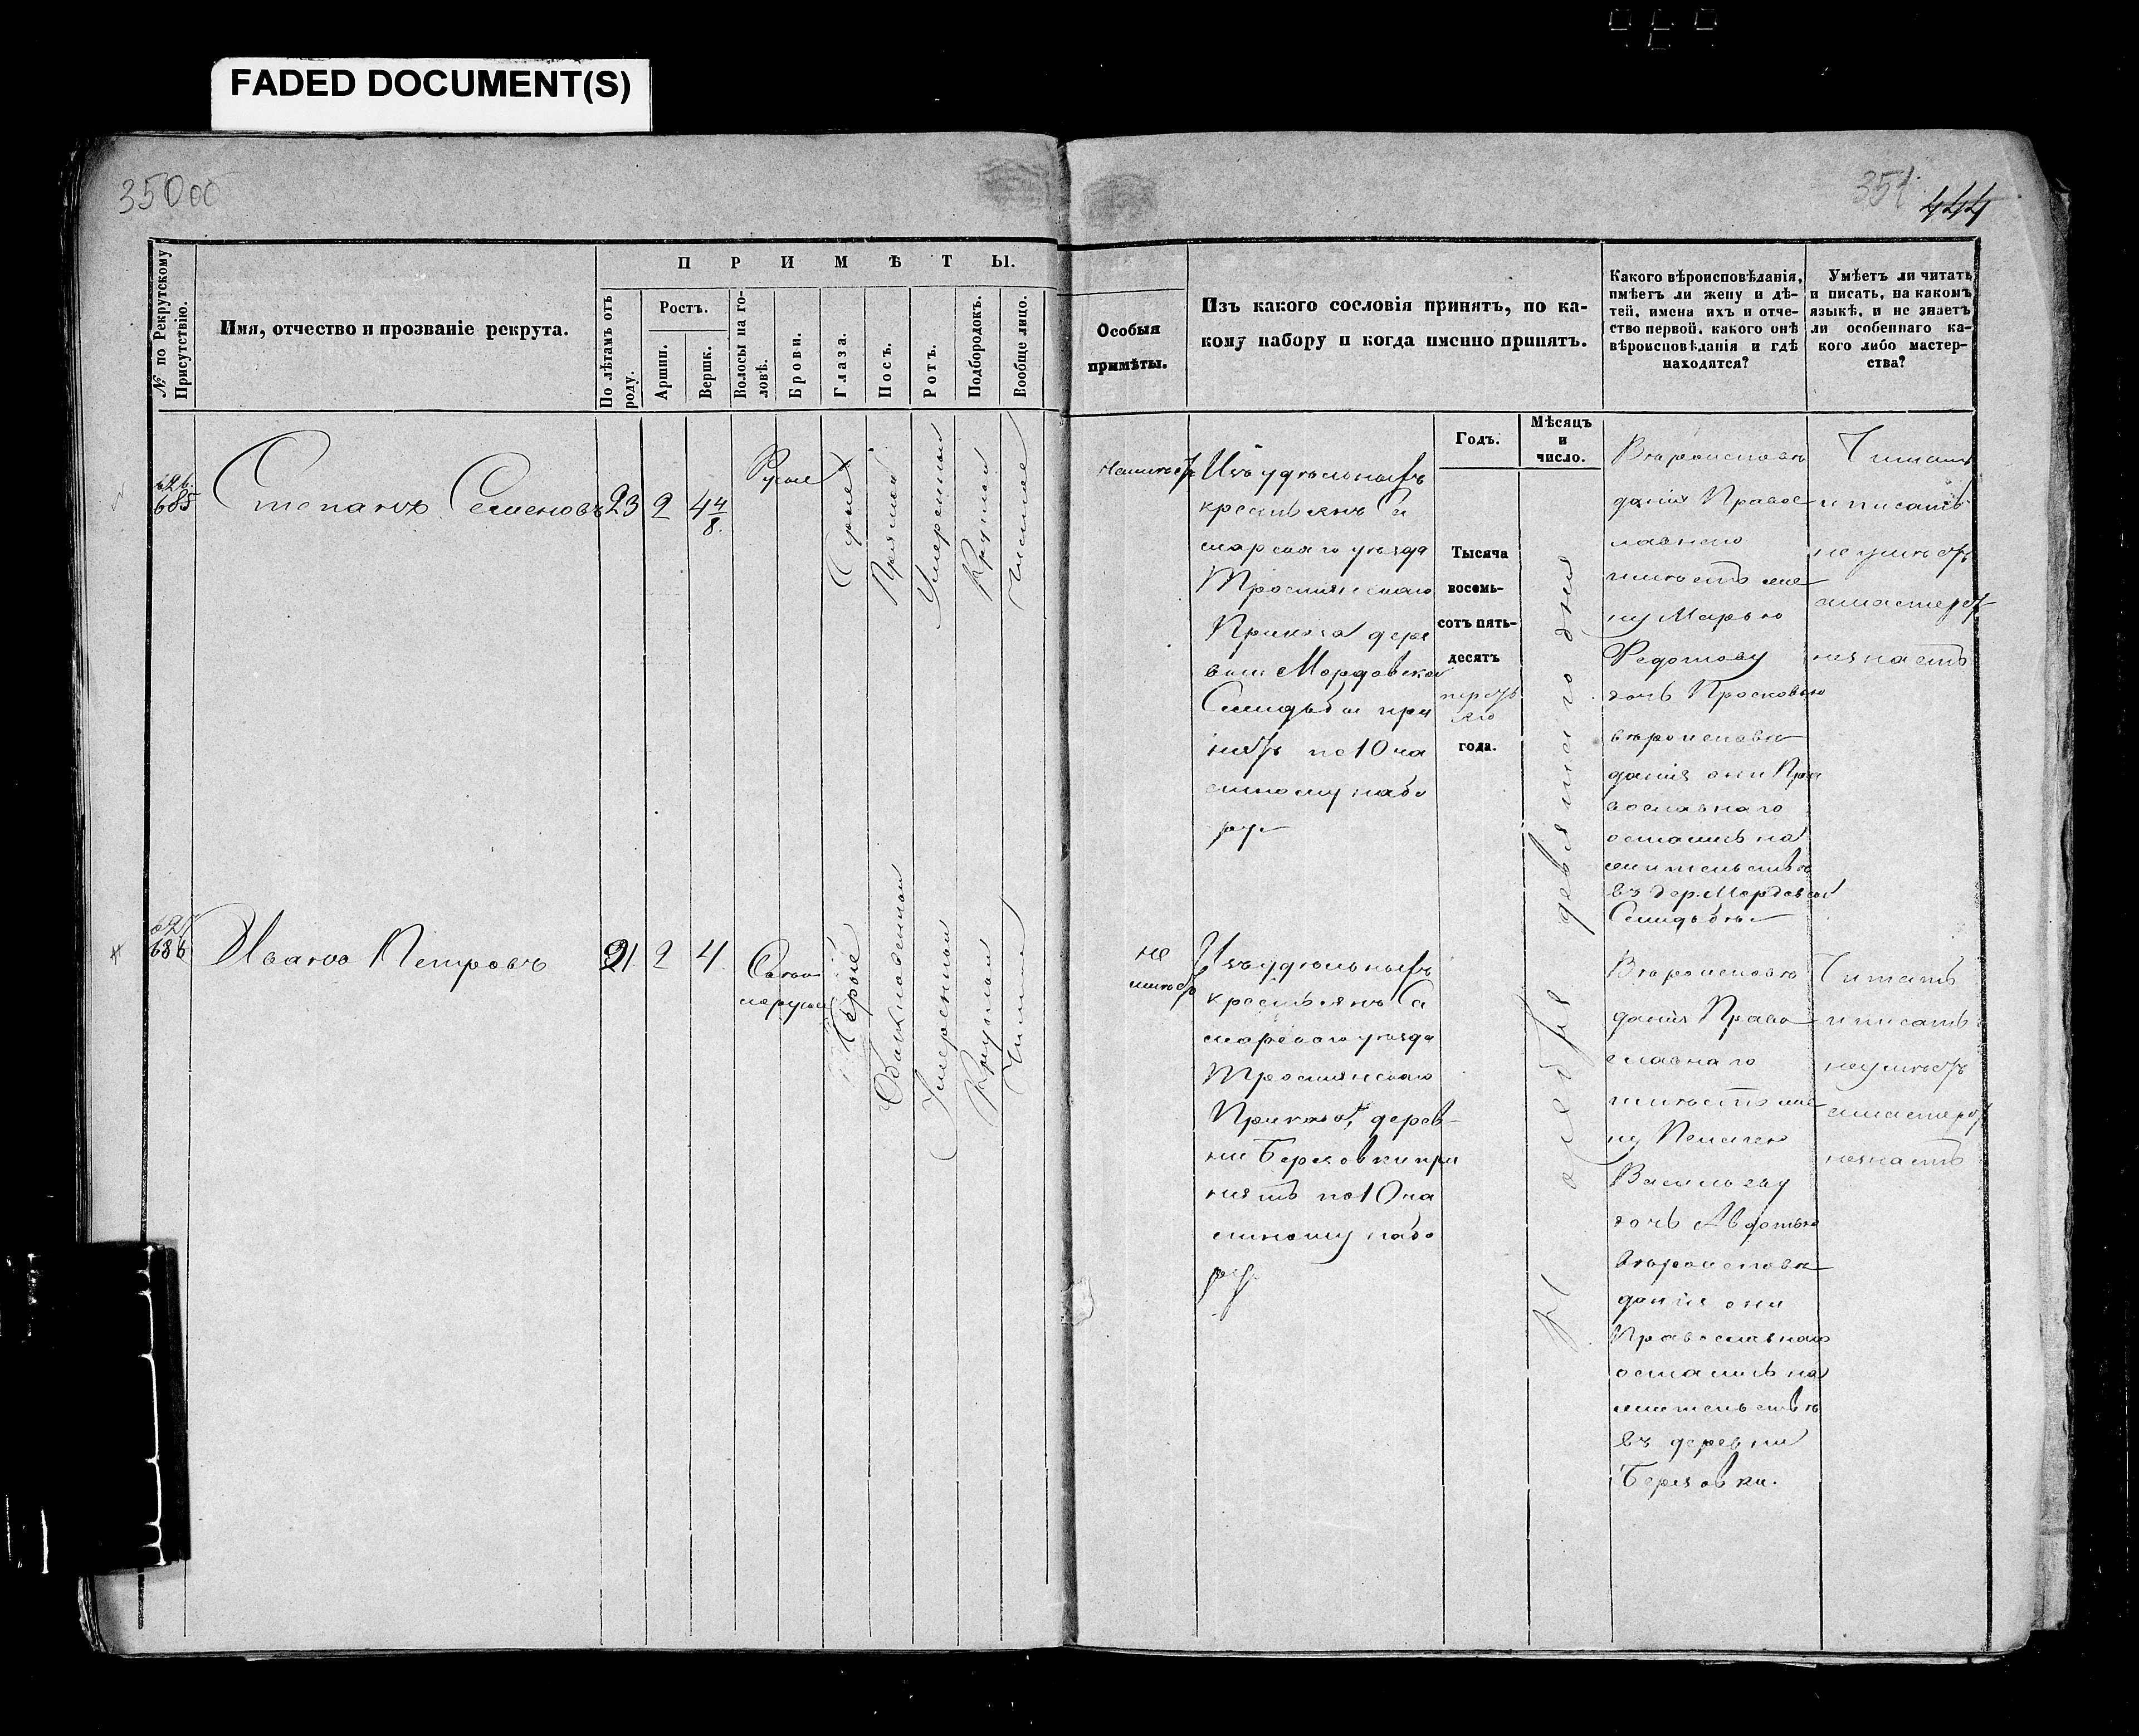 FADED DOCUMENT(S)
350об
351
444
№ по Рекрутскому
Присутствію.
Имя, отчество и прозваніе рекрута.
ПРИМѢТЫ.
По лѣтамъ отъ
роду.
Ростъ.
Аршин.
Вершк.
Волосы на го-
ловѣ.
Брови.
Глаза.
Носъ.
Ротъ.
Подбородокъ.
Вообще лицо.
Особыя
примѣты.
Изъ какого сословія принятъ, по ка-
кому набору и когда именно принятъ.
Какого вѣроисповѣданія,
имѣетъ ли жену и дѣ-
тей, имена ихъ и отче-
ство первой, какого онѣ
вѣроисповѣданія и гдѣ
находятся?
Умѣетъ ли читать
и писать, на какомъ
языкѣ, и не знаетъ
ли особеннаго ка-
кого либо мастер-
ства?
Годъ.
Мѣсяцъ
и
число.
626.
685
Степанъ Семеновъ
23
2
4 4/8.
Русые
Сѣрые
Прямой
Умѣренный
Круглой
Чистое
Неимѣетъ
Изъ удѣльныхъ
крестьянъ Са
марскаго уѣзда
Тростянскаго
Приказа дере
вни Мордовской
Селидьбы при
нятъ по 10 ча
стному набо
ру
Тысяча
восемь-
сотъ пять-
десятъ
перваго
года.
Октября девятаго дня
Вѣроисповѣ
данія Правос
лавнаго
имѣетъ же
ну Марью
Федотову
дочь Просковью
вѣроисповѣ
данія они Пра
вославнаго
остались на
жительствѣ
въ дер. Мордовской
Селидьбы
Читать
и писать
не умѣетъ
а мастерст
незнаетъ
627
686
Иванъ Петровъ
21.
2
4
Свѣтло
lорусые
Сѣрые
Обыкновенной
Умѣренной
Круглой
Чистое
не
имѣетъ
Изъ удѣльныхъ
крестьянъ Са
марскаго уѣзда
Тростянскаго
Приказа, дерев-
ни Березовки при
нятъ по 10 ча
стному набо
ру.
Вѣроисповѣ
данія Право
славнаго
имѣетъ же
ну Пелагею
Васильеву
дочь Авдотью
вѣроисповѣ
данія они
Православнаго
остались на
жительствѣ
въ деревни
Березовки.
Читать
и писать
неумѣетъ
а мастерст
незнаетъ